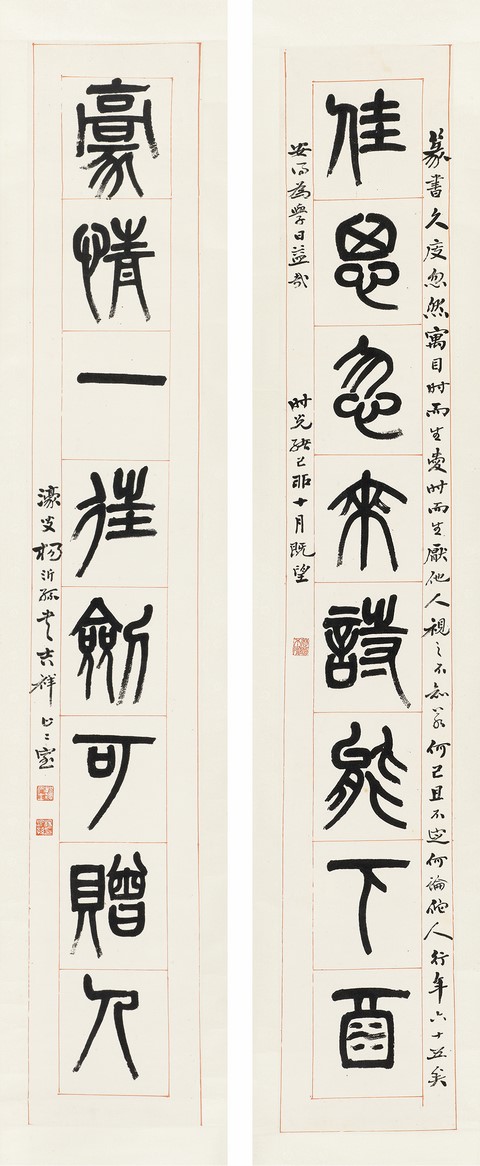 篆書久度忽然寓目时而生愛时而生厭他人視之不知若何己且不定何論他人行年六十五矣
佳思忽來詩能下酒
安得為學日益哉
时光緒己卯十月既望
豪情一往劍可贈人
濠叟楊沂孫書吉祥止止室